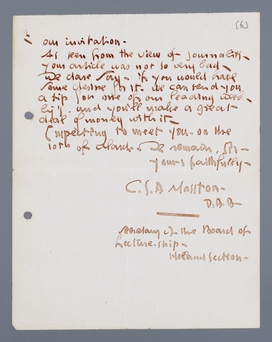 (6)
our invitation.
As seen from the view of journalist-
your article was not so very bad-
We dare say - if you would have
some desire for it. We can send you
a tip for one of our leading
and you'll make a great
deal of money with it.
Expecting to meet you - on the
10th of - We remain, Sir-
Yours faithfully-
C.S.A
Secretary of the Board of
Lecture-ship-
Section-